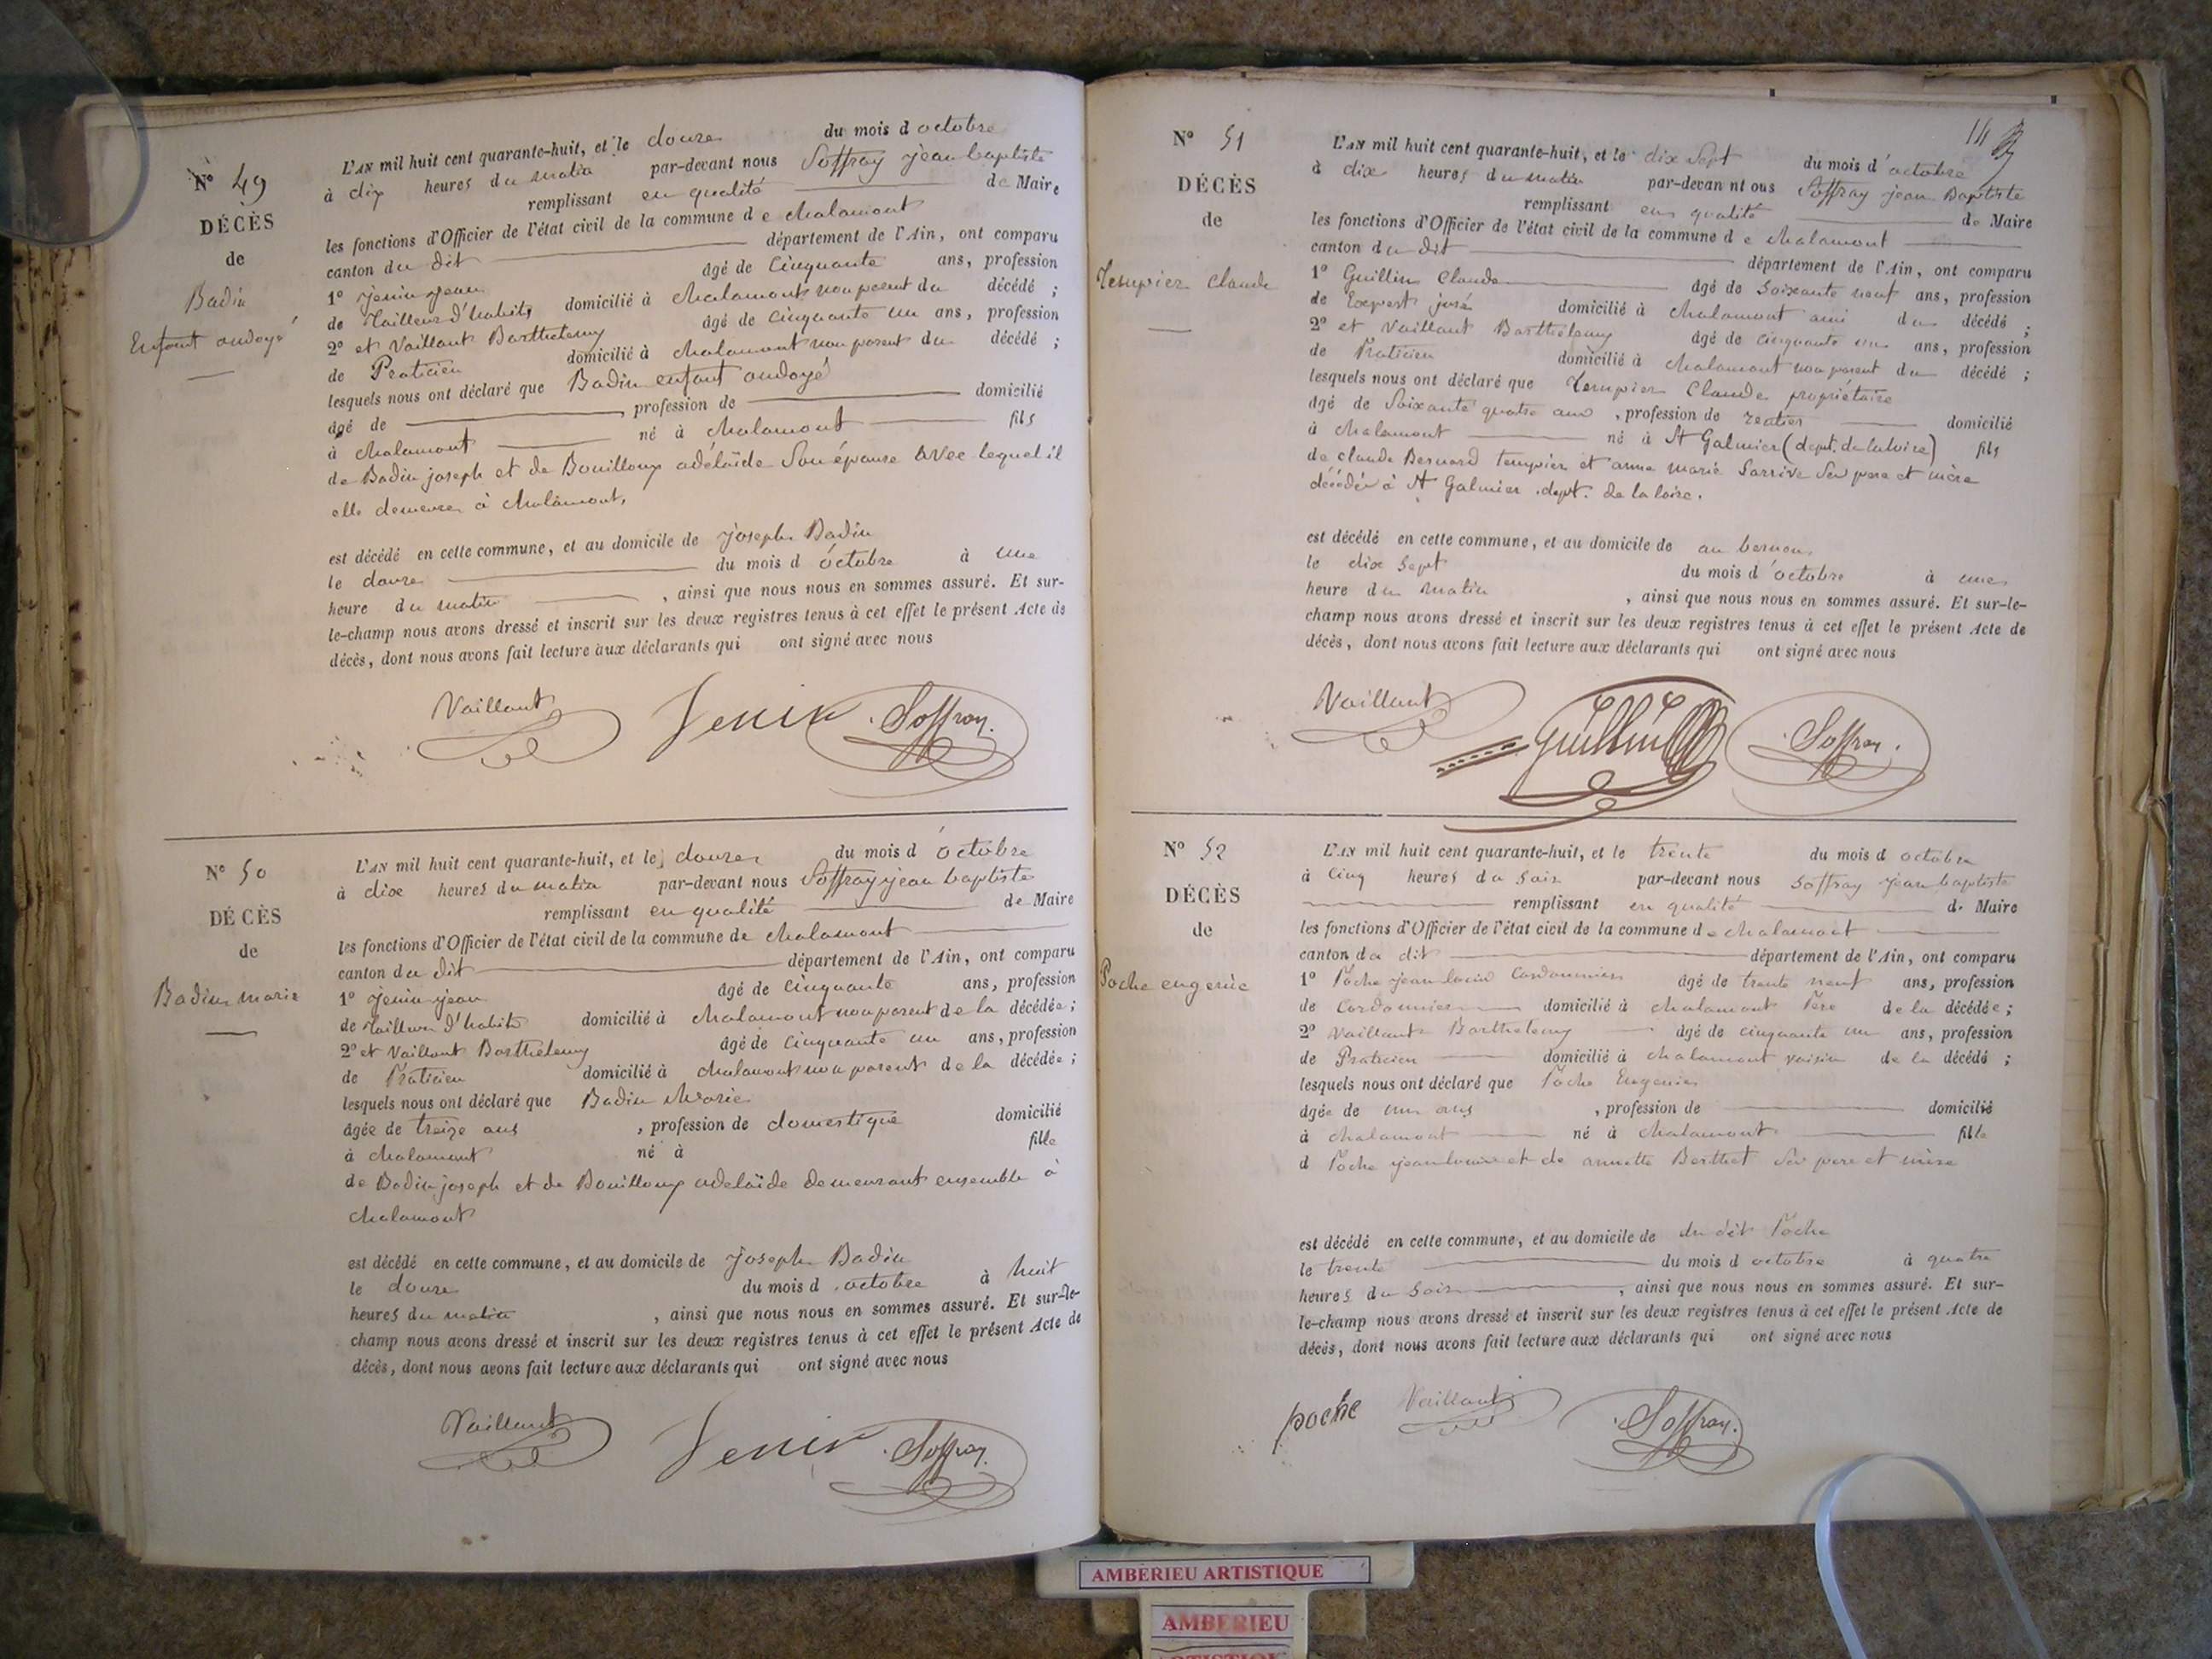 N° 49
DÉCÈS
de
Badin
Enfant ondoyé
L'AN mil huit cent quarante-huit, et le douze du mois d octobre
à dix heures du matin par-devant nous Soffray jean baptiste
remplissant en qualité de Maire
les fonctions d'Officier de l'état civil de la commune d e chalamont
canton du dit département de l'Ain, ont comparu
1° jenin jean âgé de Cinquante ans, profession
de Tailleur d'habits domicilié à chalamont non parent du décédé ;
2° et Vaillant Barthelemy âgé de cinquante un ans, profession
de Praticien domicilié à chalamont non parent du décédé ;
lesquels nous ont déclaré que Badin enfant ondoyé
âgé de , profession de domicilié
à chalamont né à chalamont fils
de Badin joseph et de Bouilloux adélaïde Son épouse avec lequel il
elle demeure à chalamont,
est décédé en cette commune, et au domicile de joseph Badin
le douze du mois d'octobre à une
heure du matin , ainsi que nous nous en sommes assuré. Et sur-
le-champ nous avons dressé et inscrit sur les deux registres tenus à cet effet le présent Acte de
décès, dont nous avons fait lecture aux déclarants qui ont signé avec nous
Vaillant Jenin Soffray
N° 50
DÉCÈS
de
Badin marie
L'AN mil huit cent quarante-huit, et le douze du mois d'octobre
à dix heures du matin par-devant nous Soffray jean baptiste
remplissant en qualité de Maire
les fonctions d'Officier de l'état civil de la commune de chalamont
canton du dit département de l'Ain, ont comparu
1° jenin jean âgé de cinquante ans, profession
de Tailleur d'habits domicilié à chalamont non parent de la décédée ;
2° et Vaillant Barthelemy âgé de cinquante un ans, profession
de Praticien domicilié à chalamont non parent de la décédée ;
lesquels nous ont déclaré que Badin Marie
âgée de treize ans , profession de domestique domicilié
à chalamont né à fille
de Badin joseph et de Bouilloux adelaïde demeurant ensemble à
chalamont
est décédé en cette commune, et au domicile de Joseph Badin
le douze du mois d octobre à huit
heures du matin , ainsi que nous nous en sommes assuré. Et sur-le-
champ nous avons dressé et inscrit sur les deux registres tenus à cet effet le présent Acte de
décès, dont nous avons fait lecture aux déclarants qui ont signé avec nous
Vaillant Jenin Soffray
14
N° 51
DÉCÈS
de
Tempier claude
L'AN mil huit cent quarante-huit, et le dix Sept du mois d'octobre
à dix heures du matin par-devan nt ous Soffray jean Baptiste
remplissant en qualité de Maire
les fonctions d'Officier de l'état civil de la commune d e chalamont
canton du dit département de l'Ain, ont comparu
1° Guillin Claude âgé de Soixante neuf ans, profession
de Expert juré domicilié à chalamont ami du décédé ;
2° et Vaillant Barthélemy âgé de cinquante un ans, profession
de Praticien domicilié à chalamont non parent du décédé ;
lesquels nous ont déclaré que Tempier Claude propriétaire
âgé de Soixante quatre ans , profession de rentier domicilié
à chalamont né à St Galmier (dept. de la loire) fils
de claude Bernard tempier et anne marie Sarrive Ses pere et mère
décédés à St Galmier dept. de la loire.
est décédé en cette commune, et au domicile de au bernon
le dix Sept du mois d'octobre à une
heure du matin , ainsi que nous nous en sommes assuré. Et sur-le-
champ nous avons dressé et inscrit sur les deux registres tenus à cet effet le présent Acte de
décès, dont nous avons fait lecture aux déclarants qui ont signé avec nous
Vaillant Guillin Soffray
N° 52
DÉCÈS
de
Poche eugenie
L'AN mil huit cent quarante-huit, et le trente du mois d octobre
à Cinq heures du Soir par-devant nous Soffray jean baptiste
remplissant en qualité de Maire
les fonctions d'Officier de l'état civil de la commune d e chalamont
canton du dit département de l'Ain, ont comparu
1° Poche jean louis Cordonnier âgé de trente neuf ans, profession
de Cordonnier domicilié à chalamont Père de la décédée ;
2° Vaillant Barthelemy âgé de cinquante un ans, profession
de Praticien domicilié à chalamont voisin de la décédé ;
lesquels nous ont déclaré que Poche Eugenie
âgée de un ans , profession de domicilié
à chalamont né à chalamont fille
d Poche jean louis et de annette Berthet Ses pere et mère
est décédé en cette commune, et au domicile de du dit Poche
le trente du mois d octobre à quatre
heures du Soir , ainsi que nous nous en sommes assuré. Et sur-
le-champ nous avons dressé et inscrit sur les deux registres tenus à cet effet le présent Acte de
décès, dont nous avons fait lecture aux déclarants qui ont signé avec nous
poche Vaillant Soffray
AMBERIEU ARTISTIQUE
AMBERIEU
ARTISTIQUE